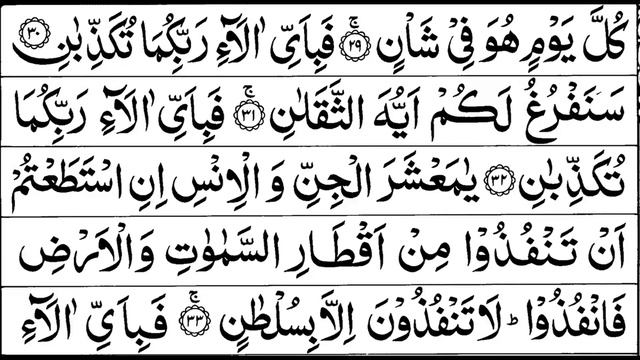 كُلَّ يَوْمٍ هُوَ فِىْ شَاْنٍ ۚ‏ ﴿۲۹﴾ فَبِاَىِّ اٰلَآءِ رَبِّكُمَا تُكَذِّبٰنِ ﴿۳۰﴾
سَنَفْرُغُ لَكُمْ اَيُّهَ الثَّقَلٰنِ‌ۚ‏ ﴿۳۱﴾ فَبِاَىِّ اٰلَآءِ رَبِّكُمَا
تُكَذِّبٰنِ ﴿۳۲﴾ يٰمَعْشَرَ الْجِنِّ وَ الْاِنْسِ اِنِ اسْتَطَعْتُمْ
اَنْ تَنْفُذُوْا مِنْ اَقْطَارِ السَّمٰوٰتِ وَالْاَرْضِ
فَانْفُذُوْا‌ؕ لَا تَنْفُذُوْنَ اِلَّا بِسُلْطٰنٍ‌ۚ‏ ﴿۳۳﴾ فَبِاَىِّ اٰلَآءِ